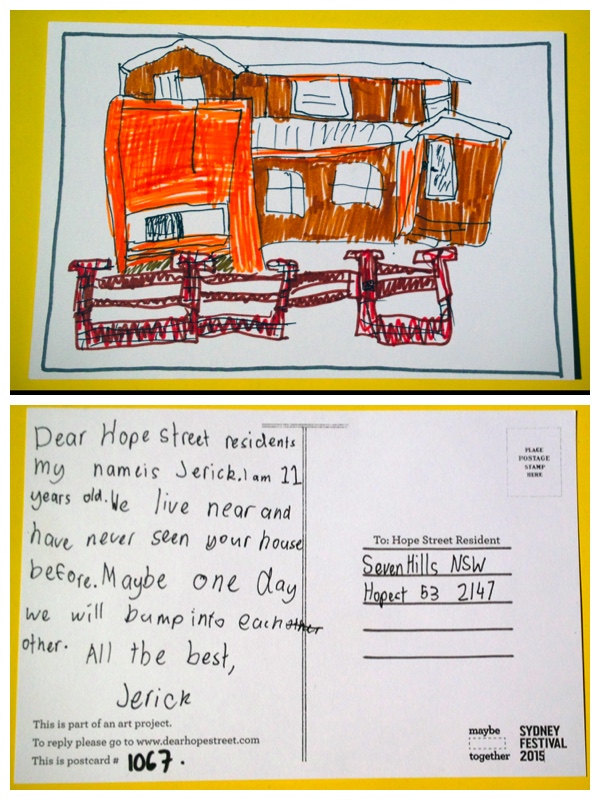 Dear Hope Street residents
my name is Jerick. I am 11
years old. We live near and
have never seen your house
before. Maybe one day
we will bump into each other
other. All the best,
Jerick
This is part of an art project.
To reply please go to www.dearhopestreet.com
This is postcard # 1067.
PLACE
POSTAGE
STAMP
HERE
To: Hope Street Resident
Seven Hills NSW
Hopect 53 2147
maybe
together
SYDNEY
FESTIVAL
2015